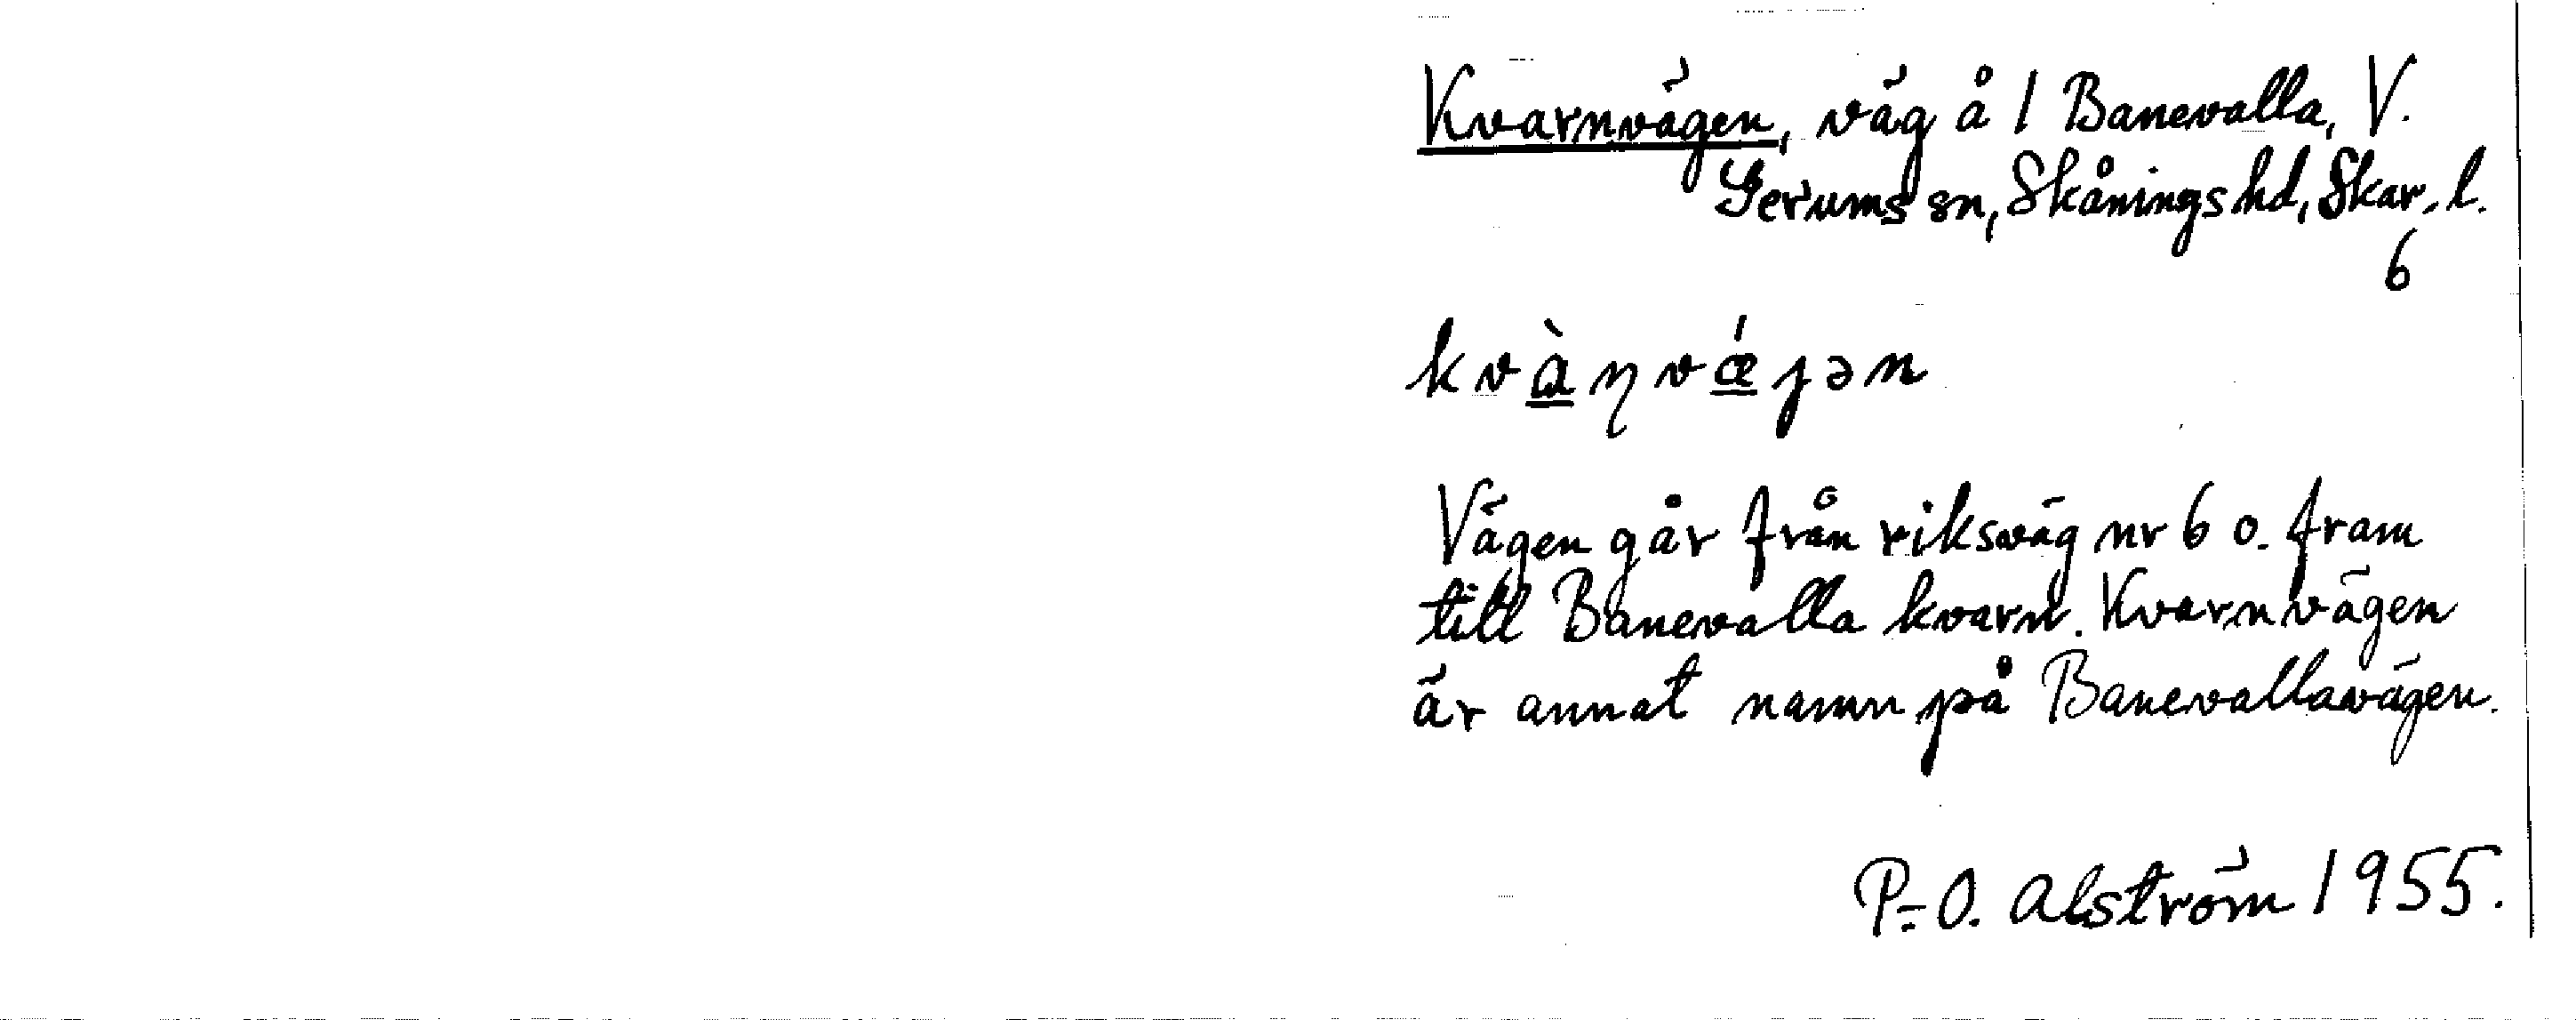 Kvarnvägen, väg å 1 Banevalla, V.
Gerums sn, Skånings hd, Skar. l.
6
kvàɳvǽjən
Vägen går från riksväg nr 6 o. fram
till Banevalla kvarn. Kvarnvägen
är annat namn på Banevallavägen.
P.-O. Alström 1955.